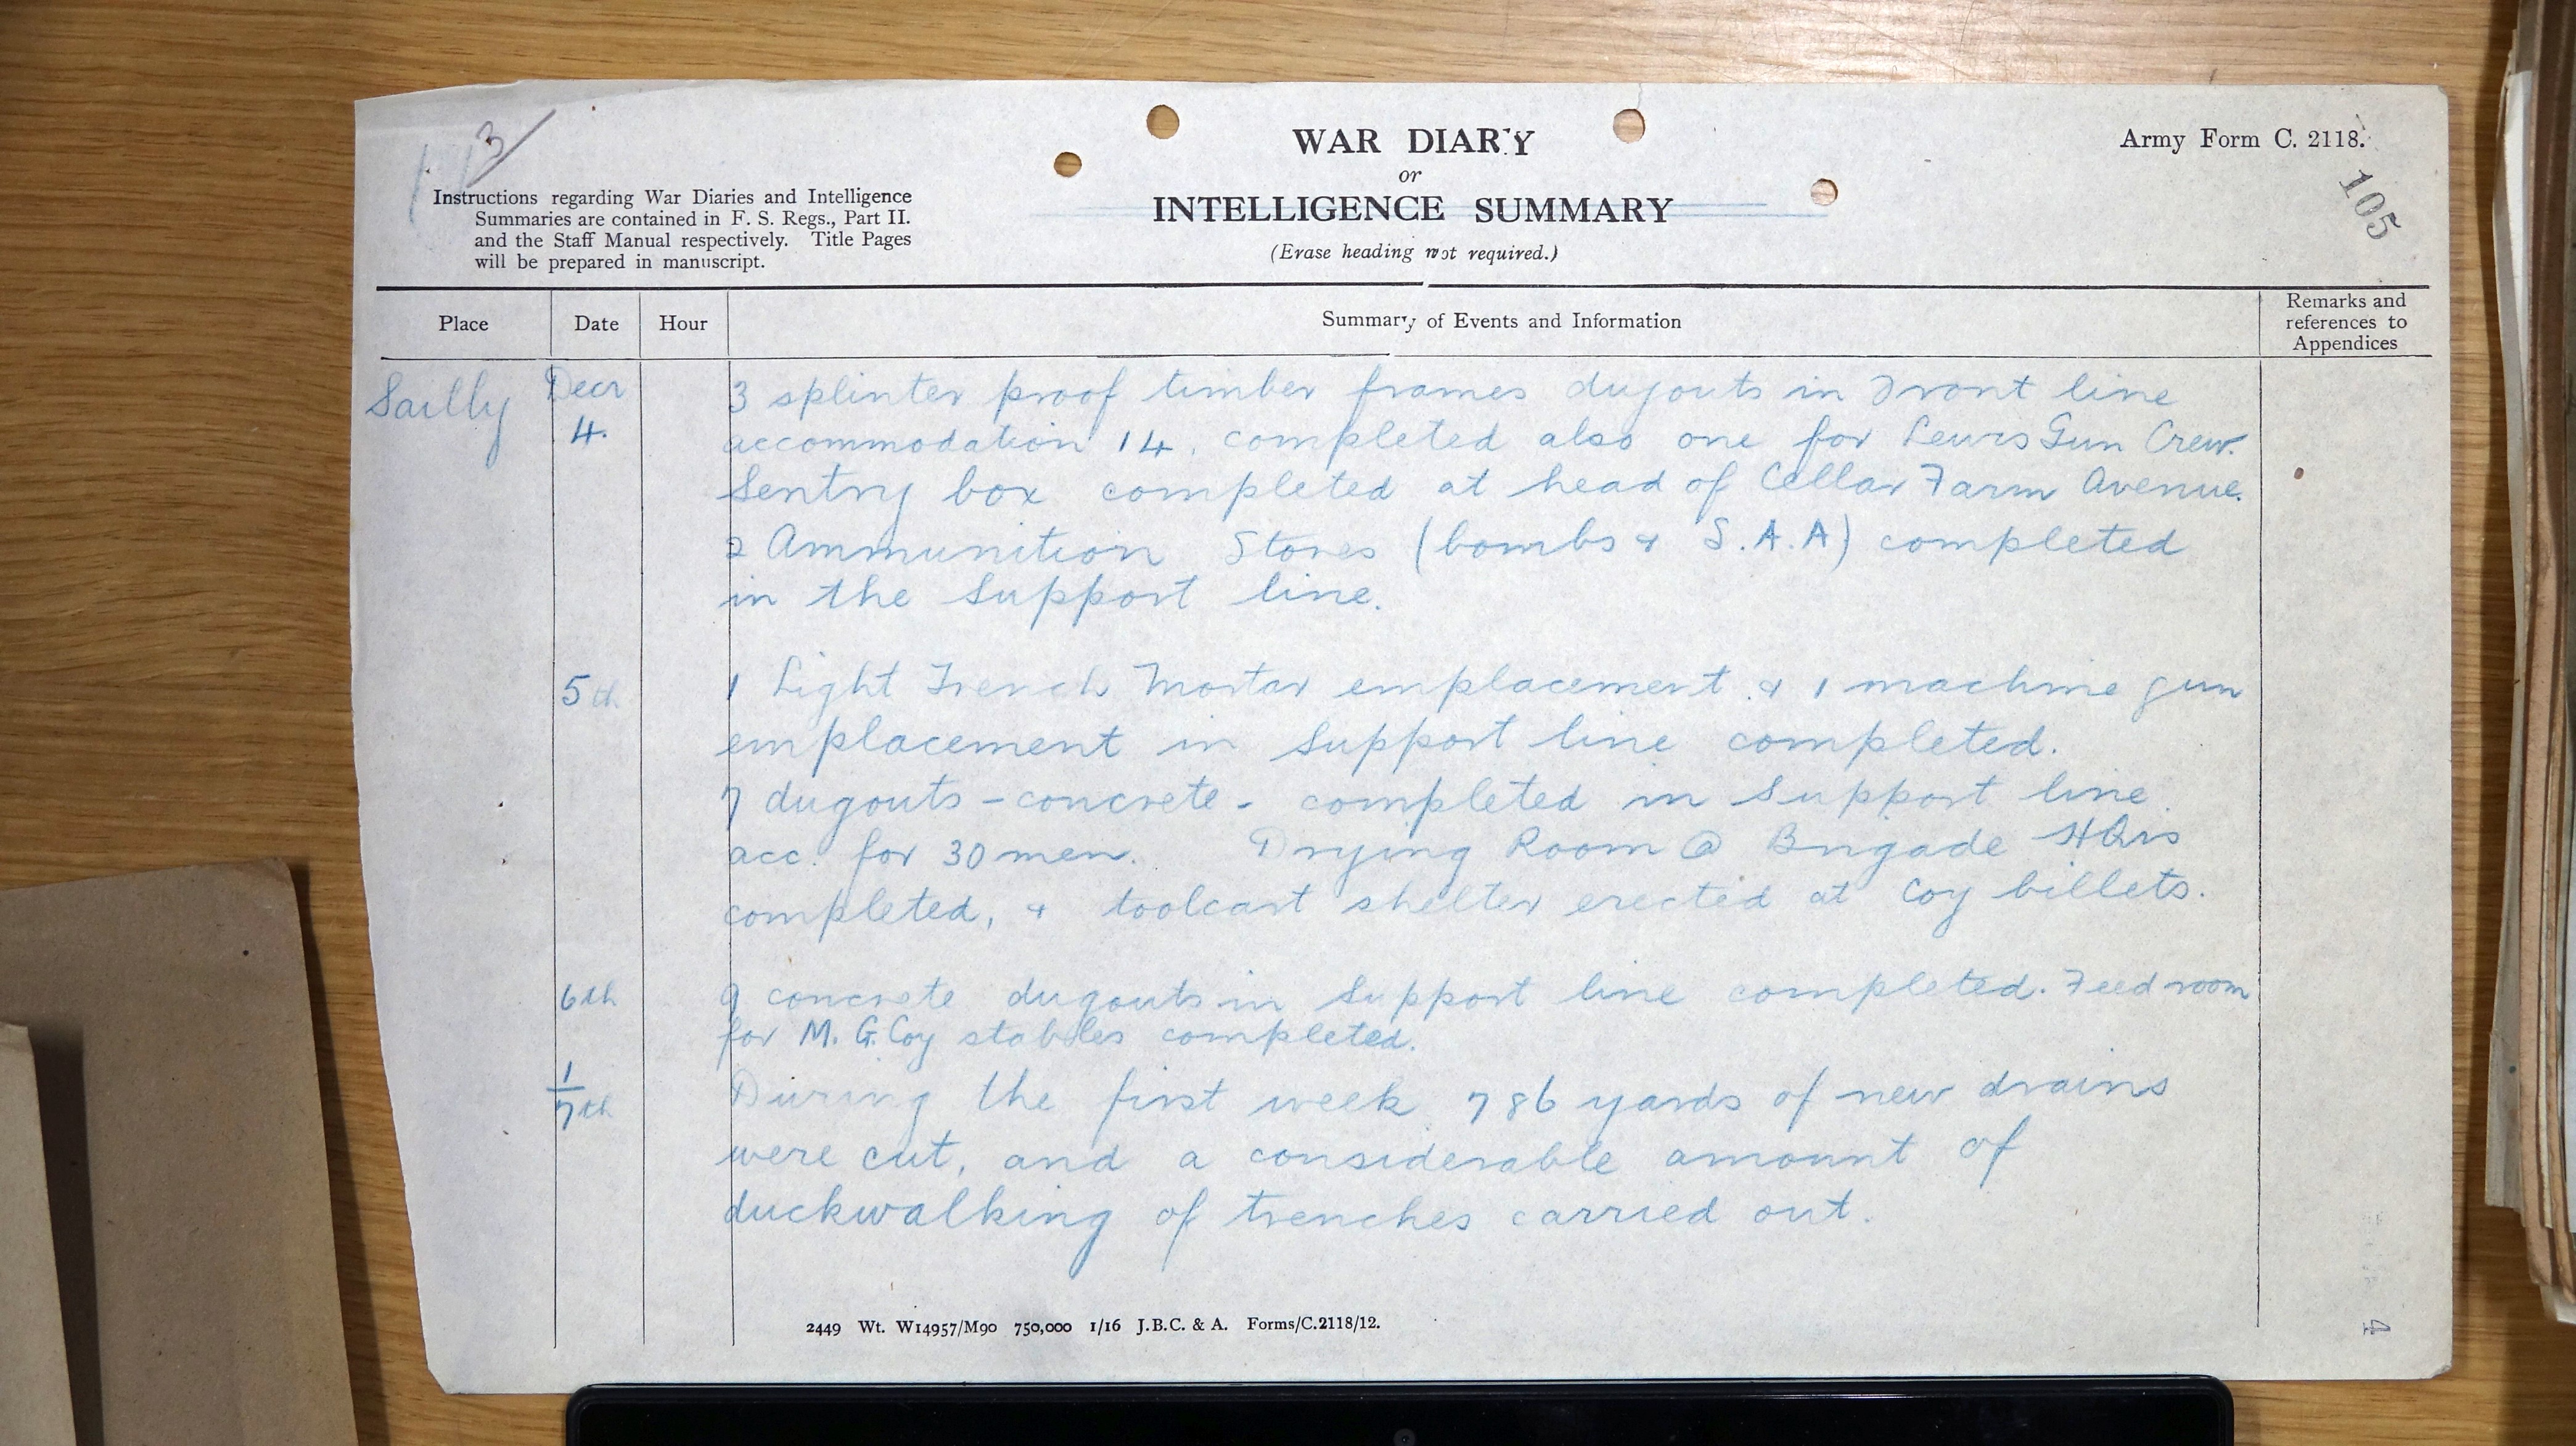 3
WAR DIARY
or
INTELLIGENCE SUMMARY
(Erase heading not required.)
Army Form C. 2118.
105
Instructions regarding War Diaries and Intelligence
Summaries are contained in F. S. Regs., Part II.
and the Staff Manual respectively. Title Pages
will be prepared in manuscript.
Place Date Hour Summary of Events and Information Remarks and references to Appendices
Sailly Decr 4. 3 splinter proof timber frames dugouts in Front line
accommodation 14, completed also one for Lewis Gun Crew.
Sentry box completed at head of Cellar Farm Avenue.
2 Ammunition Stores (bombs & S.A.A) completed
in the Support line.
5th 1 Light Trench Mortar emplacement & 1 machine gun
emplacement in Support line completed.
7 dugouts - concrete - completed in Support line.
acc. for 30 men. Drying Room @ Brigade HQrs
completed, & toolcart shelter erected at Coy billets.
6th 9 concrete dugouts in Support line completed. Feed room
for M. G. Coy stables completed.
1/7th During the first week 786 yards of new drains
were cut, and a considerable amount of
duckwalking of trenches carried out.
2449 Wt. W14957/M90 750,000 1/16 J.B.C. & A. Forms/C.2118/12.
4